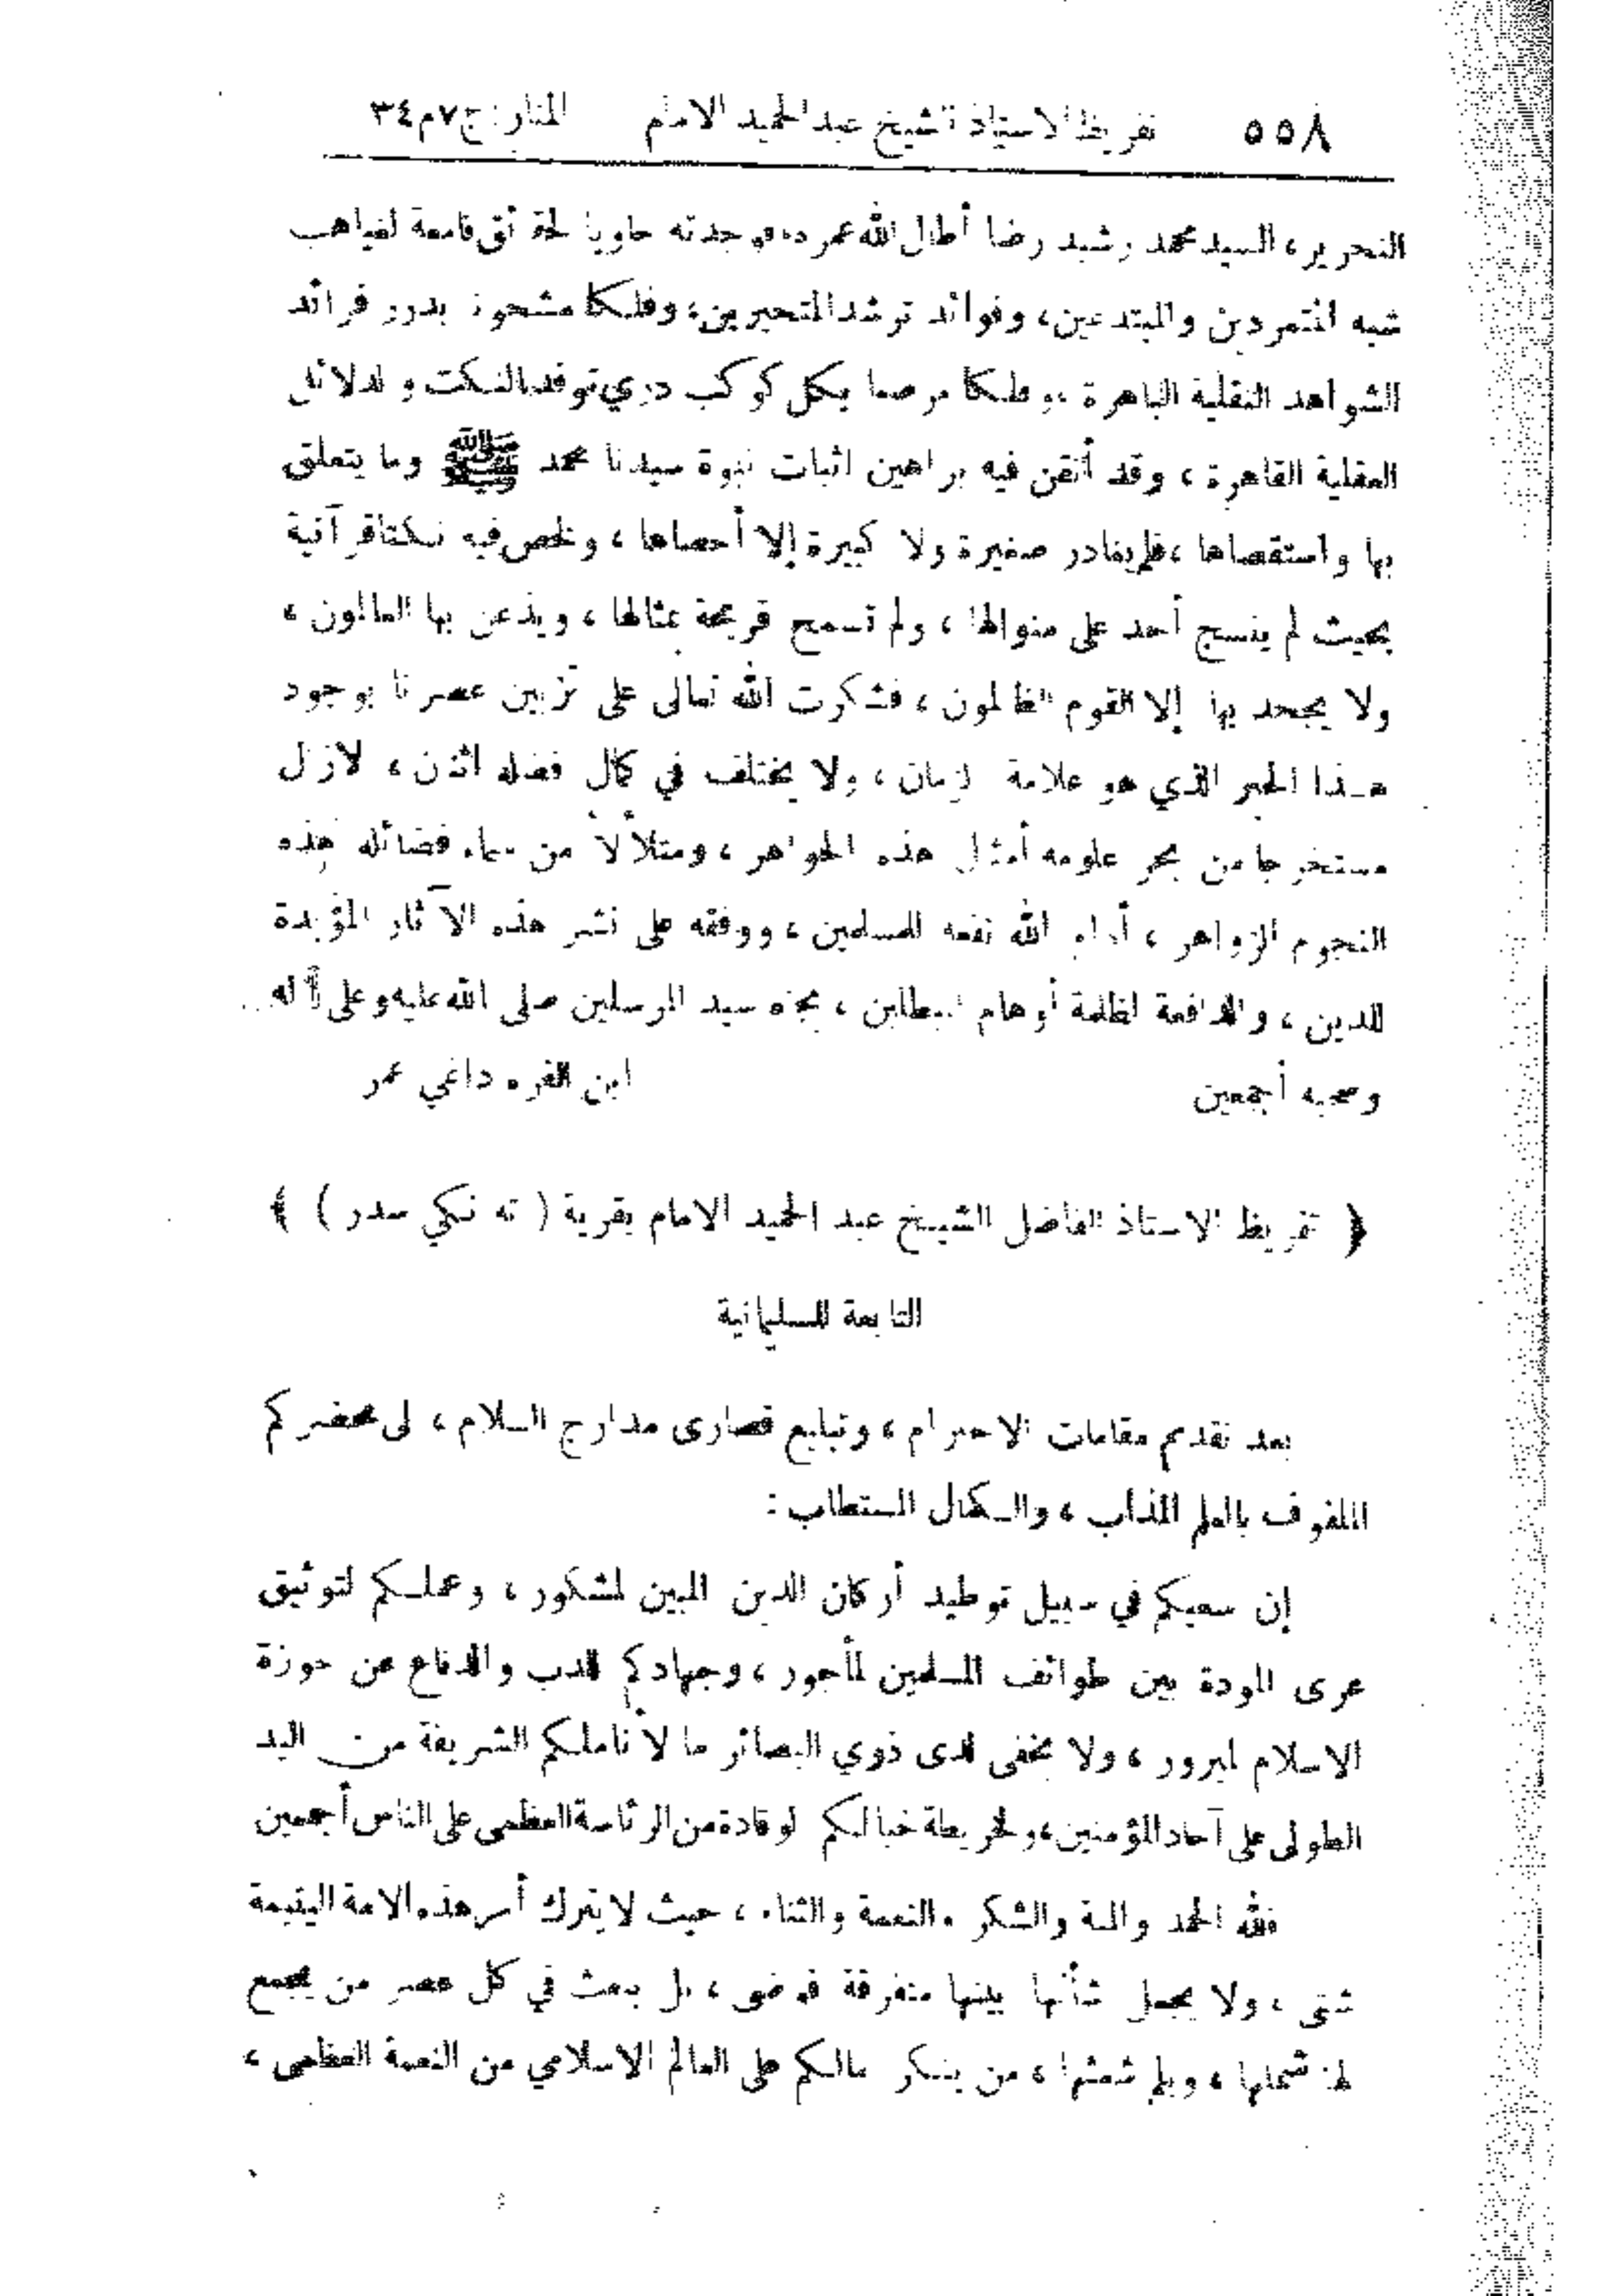 ٥٥٨ تقريظ الاستاذ الشيخ عبد الحميد الامام المنار: ج٧م٣٤
النحرير، السيد محمد رشيد رضا أطال الله عمره، فوجدته حاويا لحقائق قامعة لغياهب
شبه المتمردين والمبتدعين، وفوائد ترشد المتحيرين، وفلكا مشحونا بدرر فرائد
الشواهد النقلية الباهرة، وفلكا مرصعا بكل كوكب دري توقد بالنكت والدلائل
العقلية القاهرة، وقد أتقن فيه براهين اثبات نبوة سيدنا محمد ﷺ وما يتعلق
بها واستقصاها، فلم يغادر صغيرة ولا كبيرة إلا أحصاها، ولخص فيه نكتا قرآنية
بحيث لم ينسج أحد على منوالها، ولم تسمح قريحة بمثالها، ويذعن بها العالمون،
ولا يجحد بها إلا القوم الظالمون، فشكرت الله تعالى على تزيين عصرنا بوجود
هذا الحبر الذي هو علامة الزمان، ولا يختلف في كمال فضله اثنان، لازال
مستخرجا من بحر علومه أمثال هذه الجواهر، ومتلألأ من سماء فضائله هذه
النجوم الزواهر، أدام الله نفعه للمسلمين، ووفقه على نشر هذه الآثار المؤيدة
للدين، والدافعة لظلمة أوهام المبطلين، بجاه سيد المرسلين صلى الله عليه وعلى آله
وصحبه أجمعين ابن القره داغي عمر
﴿ تقريظ الاستاذ الفاضل الشيخ عبد الحميد الامام بقرية ( ته نكي سدر ) ﴾
التابعة للسليمانية
بعد تقديم مقامات الاحترام، وتبليغ قصارى مدارج السلام، لى محضركم
الملفوف بالعلم المذاب، والكمال المستطاب:
إن سعيكم في سبيل توطيد أركان الدين المبين لمشكور، وعملكم لتوثيق
عرى المودة بين طوائف المسلمين لمأجور، وجهادكم للذب والدفاع عن حوزة
الاسلام لمبرور، ولا يخفى لدى ذوي البصائر ما لأناملكم الشريفة من اليد
الطولى على آحاد المؤمنين، ولخريطة خيالكم الوقادة من الرئاسة العظمى على الناس أجمعين
فلله الحمد والمنة والشكر والنعمة والثناء، حيث لا يترك أمر هذه الامة اليتيمة
شتى، ولا يجعل شأنها بينها متفرقة فوضى، بل يبعث في كل عصر من يجمع
لها شملها، ويلم شعثها، من ينكر مالكم على العالم الاسلامي من النعمة العظمى،